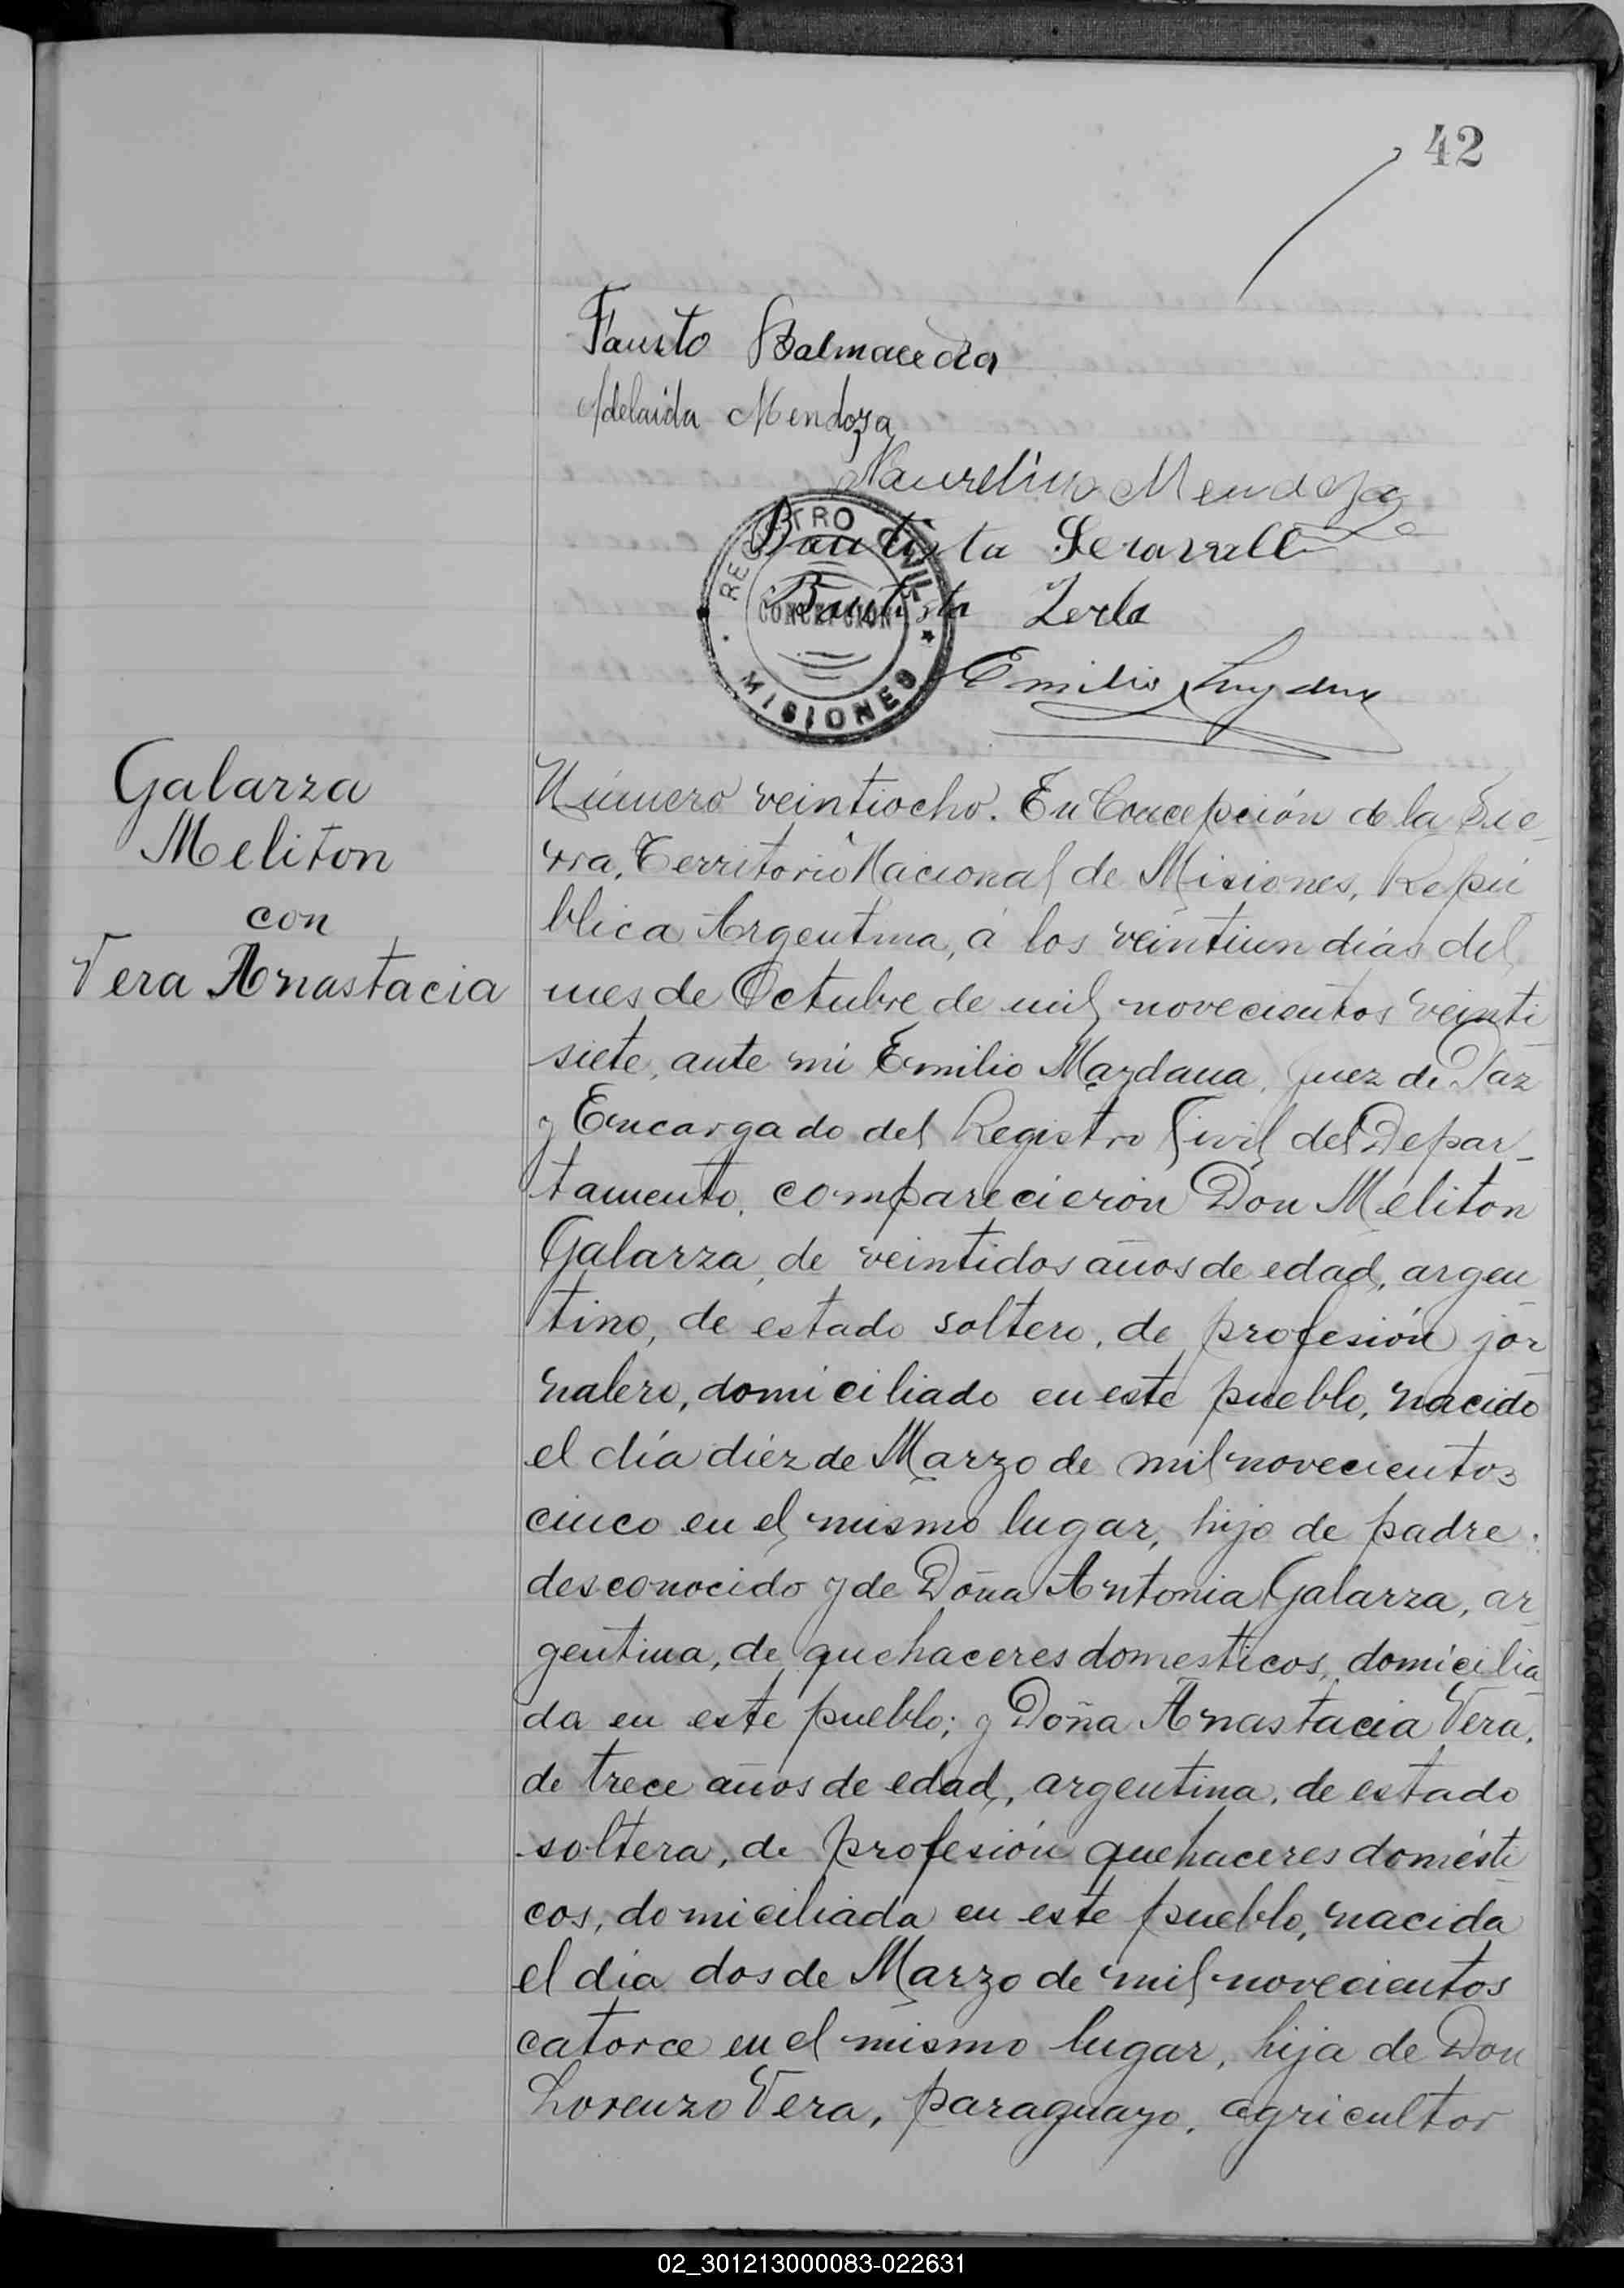 42
Fausto Balmaceda
Adelaida Mendoza
Maurelino Mendoza
Bautista
Bautista Zerla
Emilio
REGISTRO CIVIL
CONCEPCION
MISIONES
Galarza
Meliton
con
Vera Anastacia
Número veintiocho. En Concepción de la Sie-
rra, Territorio Nacional de Misiones, Repú
blica Argentina, á los veintiun dias del
mes de Octubre de mil novecientos veinti
siete, ante mi Emilio Mazdana, Juez de Paz
y Encargado del Registro Civil del Depar-
tamento, comparecieron Don Meliton
Galarza, de veintidos años de edad, argen
tino, de estado soltero, de profesión jor
nalero, domiciliado en este pueblo, nacido
el día diez de Marzo de mil novecientos
cinco en el mismo lugar, hijo de padre
desconocido y de Doña Antonia Galarza, ar
gentina, de quehaceres domesticos, domicilia
da en este pueblo; y Doña Anastacia Vera,
de trece años de edad, argentina, de estado
soltera, de profesión quehaceres domésti
cos, domiciliada en este pueblo, nacida
el día dos de Marzo de mil novecientos
catorce en el mismo lugar, hija de Don
Lorenzo Vera, paraguayo, agricultor
02_301213000083-022631